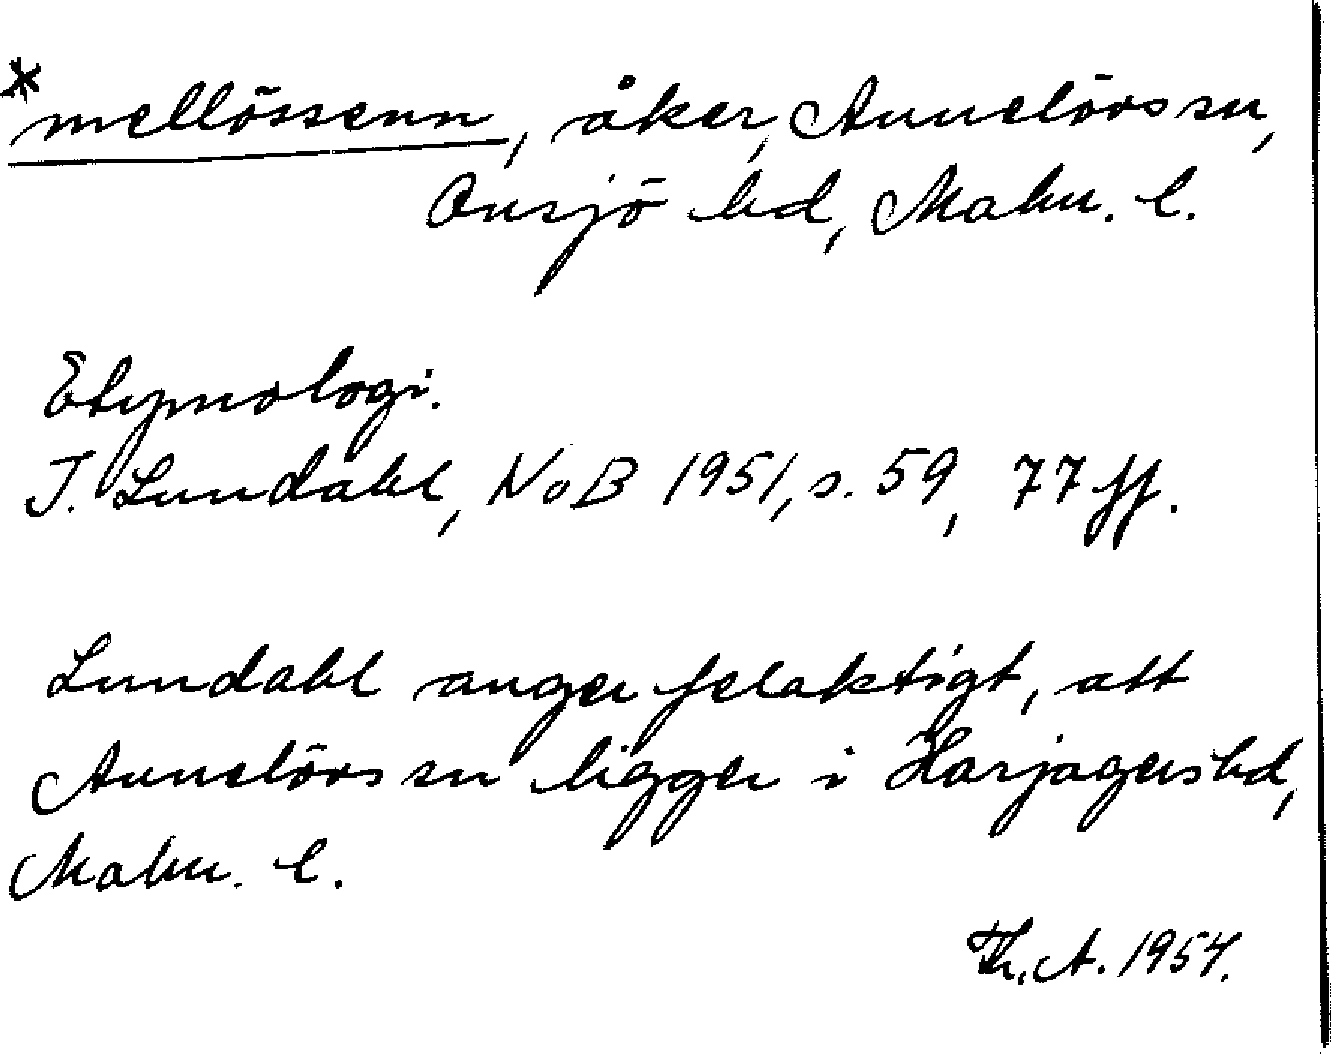 *mellössenn, åker, Annelövs sn,
Onsjö hd, Malm. l.
Etymologi.
I. Lundahl, NoB 1951, s. 59, 77 ff.
Lundahl anger felaktigt, att
Annelövs sn ligger i Harjagers hd,
Malm. l.
Th. A. 1954.